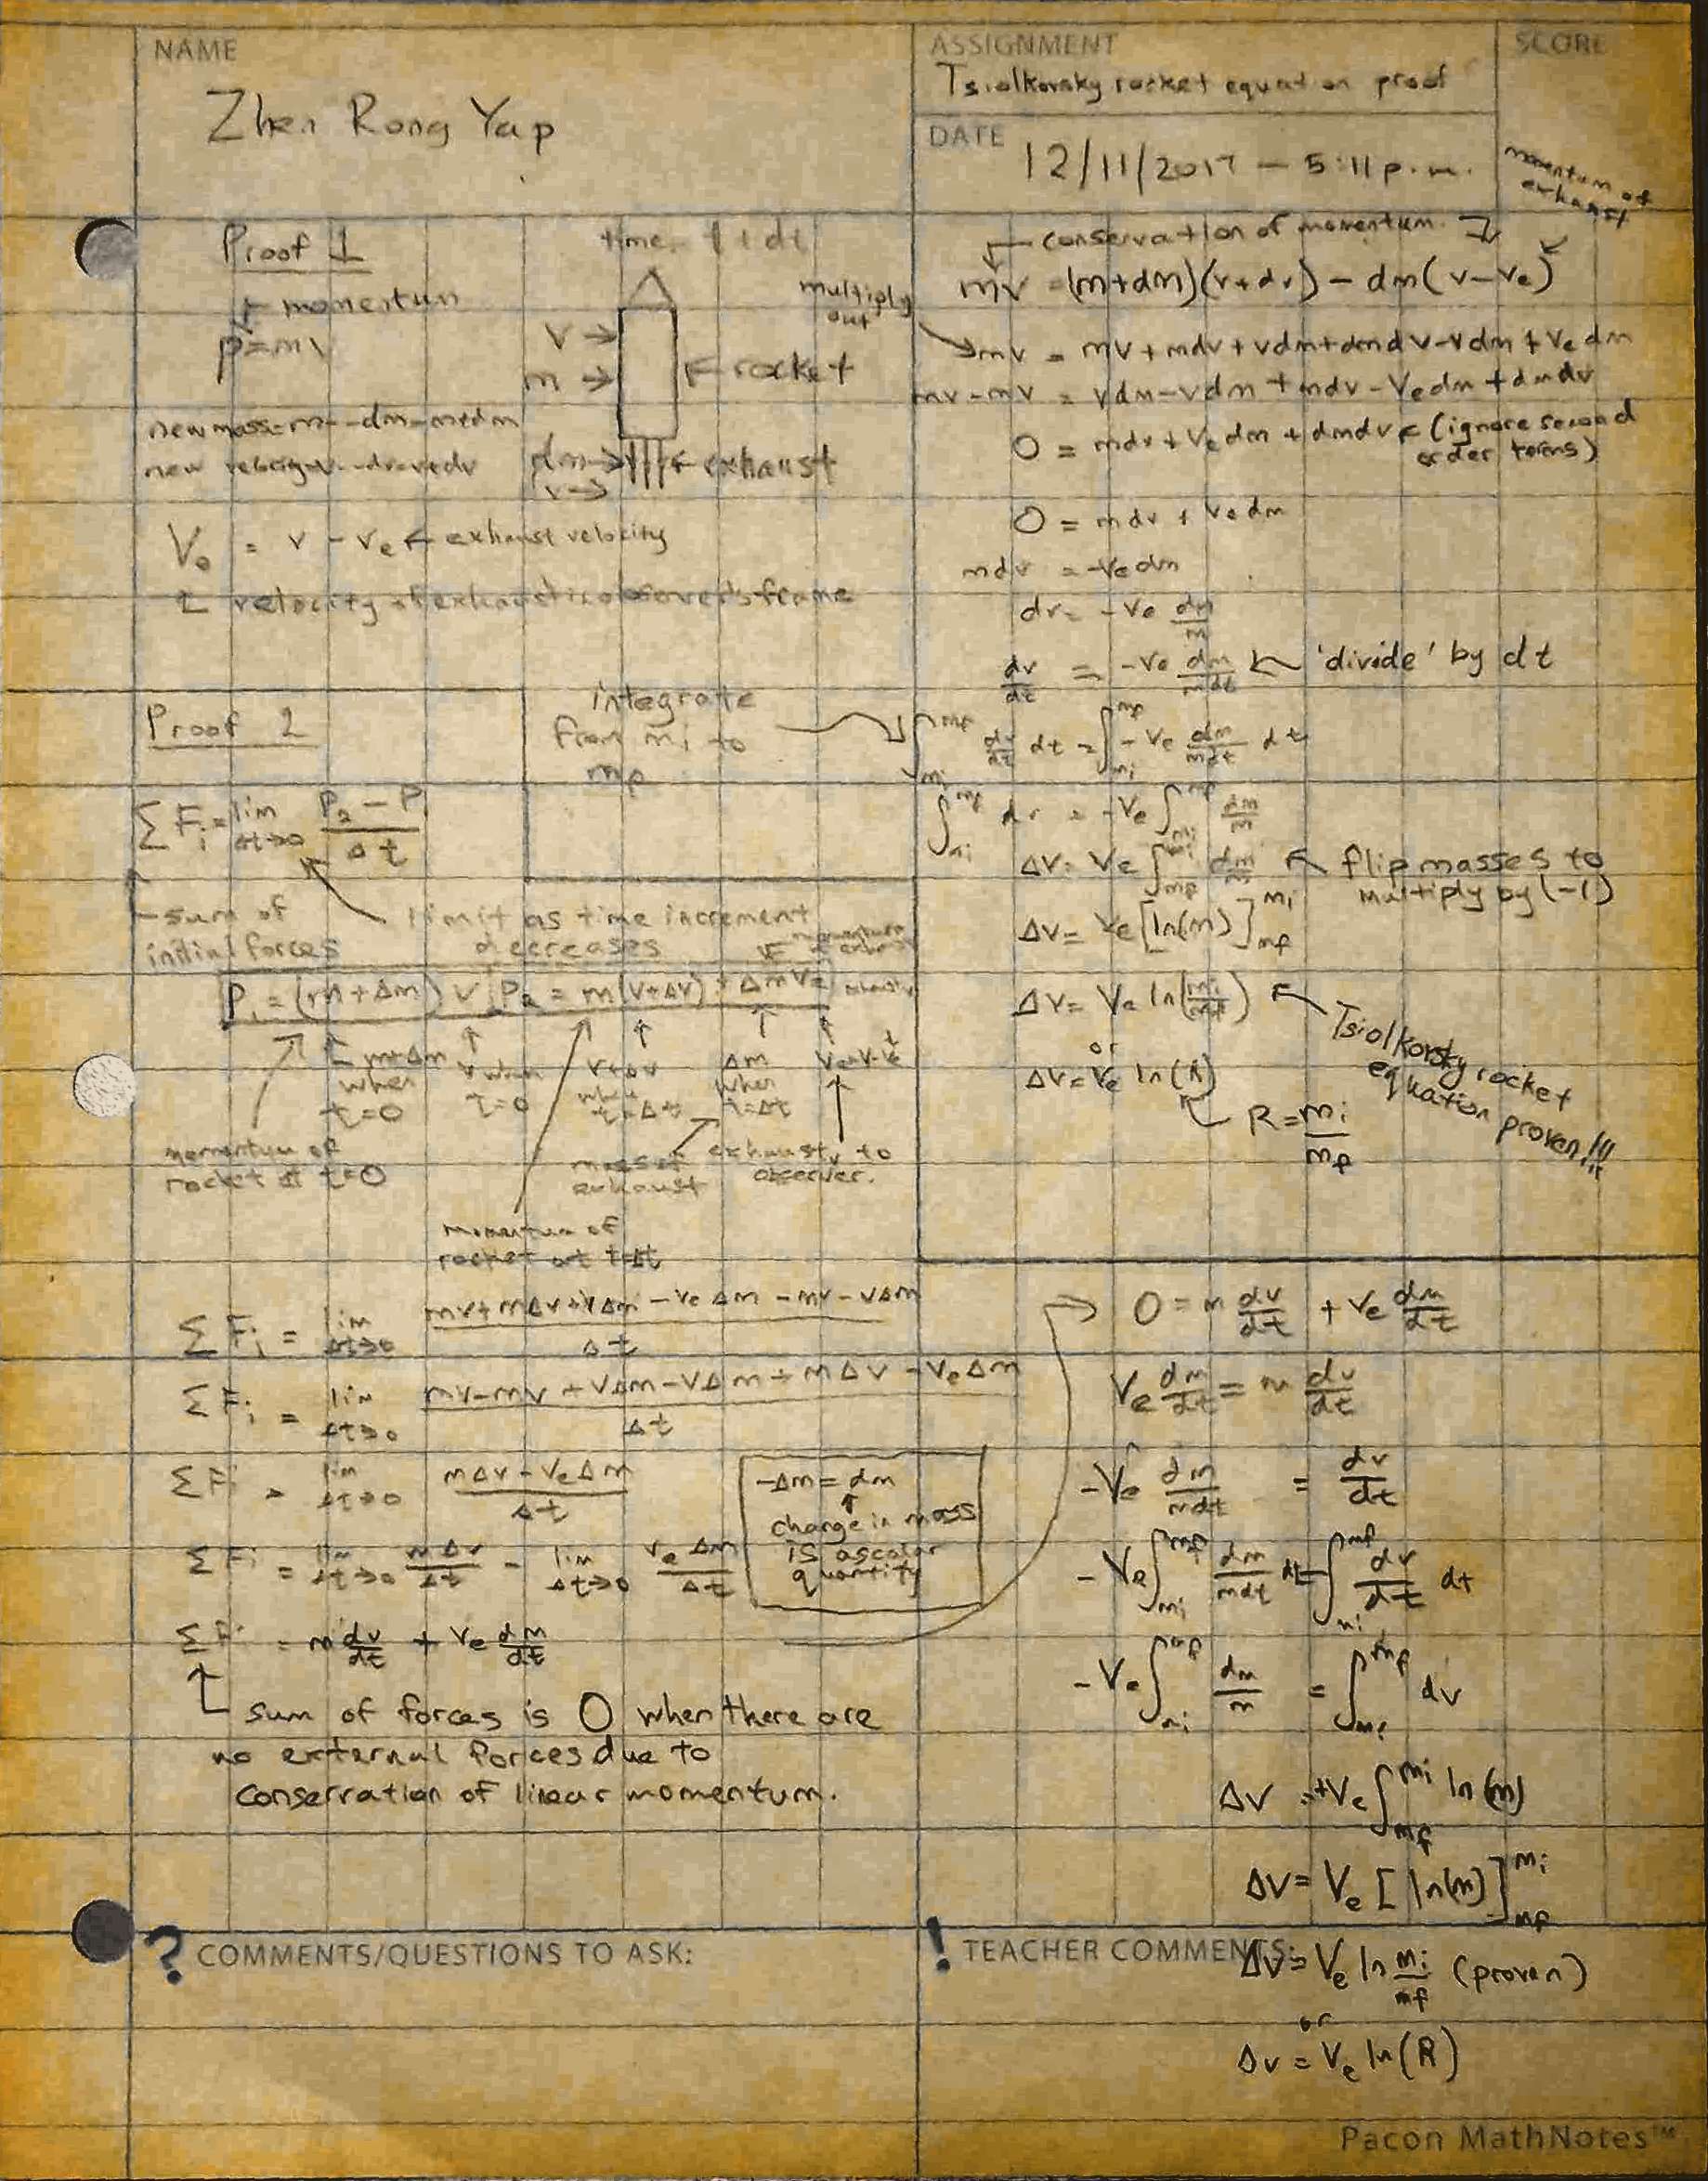 NAME
Zhen Rong Yap
ASSIGNMENT
Tsiolkovsky rocket equation proof
SCORE
DATE
12/11/2017 – 5:11 p.m.
Proof 1
momentum
p = mv
time t + dt
v →
m →
← rocket
dm →
v →
← exhaust
new mass = m - -dm = m+dm
new velocity = v - -dv = v+dv
V₀ = v - vₑ ← exhaust velocity
velocity of exhaust in observer's frame
conservation of momentum.
momentum of
exhaust
mv = (m+dm)(v+dv) - dm(v-vₑ)
multiply
out
mv = mv + mdv + vdm + dmdv - vdm + vₑdm
mv - mv = vdm - vdm + mdv - vₑdm + dmdv
0 = mdv + vₑdm + dmdv ← (ignore second
order terms)
0 = mdv + vₑdm
mdv = -vₑdm
dv = -vₑ dm/m
dv/dt = -vₑ dm/mdt ← 'divide' by dt
integrate
from mᵢ to
mf
∫mᵢ^mf dv/dt dt = ∫mᵢ^mf -vₑ dm/mdt dt
∫mᵢ^mf dv = -vₑ ∫mᵢ^mf dm/m
Δv = vₑ ∫mf^mᵢ dm/m ← flip masses to
multiply by (-1)
Δv = vₑ [ln(m)]mf^mᵢ
Δv = Vₑ ln(mᵢ/mf)
or
Δv = vₑ ln(R)
R = mᵢ/mf
Tsiolkovsky rocket
equation proven!!!
Proof 2
ΣFᵢ = lim Δt→0 P₂ - P₁ / Δt
sum of
initial forces
limit as time increment
decreases
momentum
of exhaust
P₁ = (m + Δm) v P₂ = m(v+Δv) + ΔmVₑ
m+Δm
when
t=0
v when
t=0
v+Δv
when
t=Δt
Δm
when
t=Δt
Vₑ=v-vₑ
momentum of
rocket at t=0
mass of
exhaust
exhaust v to
observer.
momentum of
rocket at t=Δt
ΣFᵢ = lim Δt→0 mv + mΔv + vΔm - vₑΔm - mv - vΔm / Δt
ΣFᵢ = lim Δt→0 mv - mv + vΔm - vΔm + mΔv - vₑΔm / Δt
ΣFᵢ = lim Δt→0 mΔv - vₑΔm / Δt
-Δm = dm
change in mass
is a scalar
quantity
ΣFᵢ = lim Δt→0 mΔv/Δt - lim Δt→0 vₑΔm/Δt
ΣFᵢ = m dv/dt + vₑ dm/dt
sum of forces is 0 when there are
no external forces due to
conservation of linear momentum.
0 = m dv/dt + vₑ dm/dt
Vₑ dm/dt = m dv/dt
-Vₑ dm/mdt = dv/dt
-Vₑ ∫mᵢ^mf dm/mdt dt = ∫mᵢ^mf dv/dt dt
-Vₑ ∫mᵢ^mf dm/m = ∫mᵢ^mf dv
Δv = +Vₑ ∫mf^mᵢ ln(m)
Δv = Vₑ [ln(m)]mf^mᵢ
? COMMENTS/QUESTIONS TO ASK:
! TEACHER COMMENTS:
Δv = Vₑ ln mᵢ/mf (proven)
or
Δv = Vₑ ln(R)
Pacon MathNotes™